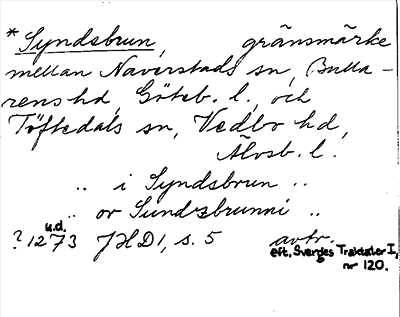 * Syndsbrun, gränsmärke
mellan Naverstads sn, Bulla-
rens hd, Göteb. l., och
Töftedals sn, Vedbo hd,
Älvsb. l.
.. i Syndsbrun ..
.. or Sundzbrunni ..
u.d.
? 1273 JHD 1, s. 5 avtr.
eft. Sverges Traktater I,
nr 120.